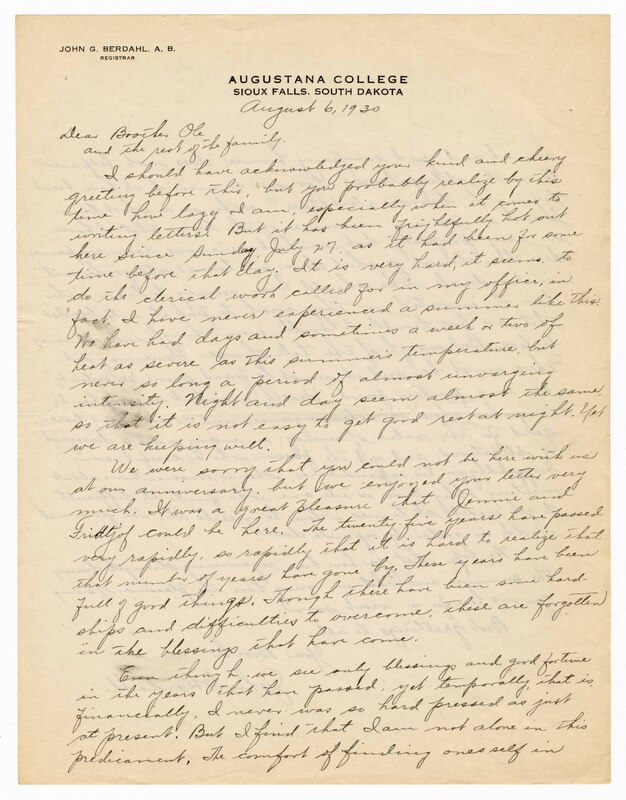 JOHN G. BERDAHL, A. B.
REGISTRAR
AUGUSTANA COLLEGE
SIOUX FALLS, SOUTH DAKOTA
August 6, 1930
Dear Brother Ole
and the rest of the family.
I should have acknowledged your kind and cheery
greeting before this, but you probably realize by this
time how lazy I am, especially when it comes to
writing letters. But it has been frightfully hot out
here since Sunday, July 27. as it had been for some
time before that day. It is very hard, it seems, to
do the clerical work called for in my office, in
fact, I have never experienced a summer like this.
We have had days and sometimes a week or two of
heat as severe as this summer's temperature, but
never so long a period of almost unvarying
intensity. Night and day seem almost the same
so that it is not easy to get good rest at night. Yet
we are keeping well.
We were sorry that you could not be here with us
at our anniversary, but we enjoyed your letter very
much. It was a great pleasure that Jennie and
Fridtjof could be here. The twenty five years have passed
very rapidly, so rapidly that it is hard to realize that
that number of years have gone by. These years have been
full of good things. Though there have been some hard-
ships and difficulties to overcome, these are forgotten
in the blessings that have come.
Even though we see only blessings and good fortune
in the years that have passed, yet temporally, that is
financially, I never was so hard pressed as just
at present. But I find that I am not alone in this
predicament. The comfort of finding ones self in